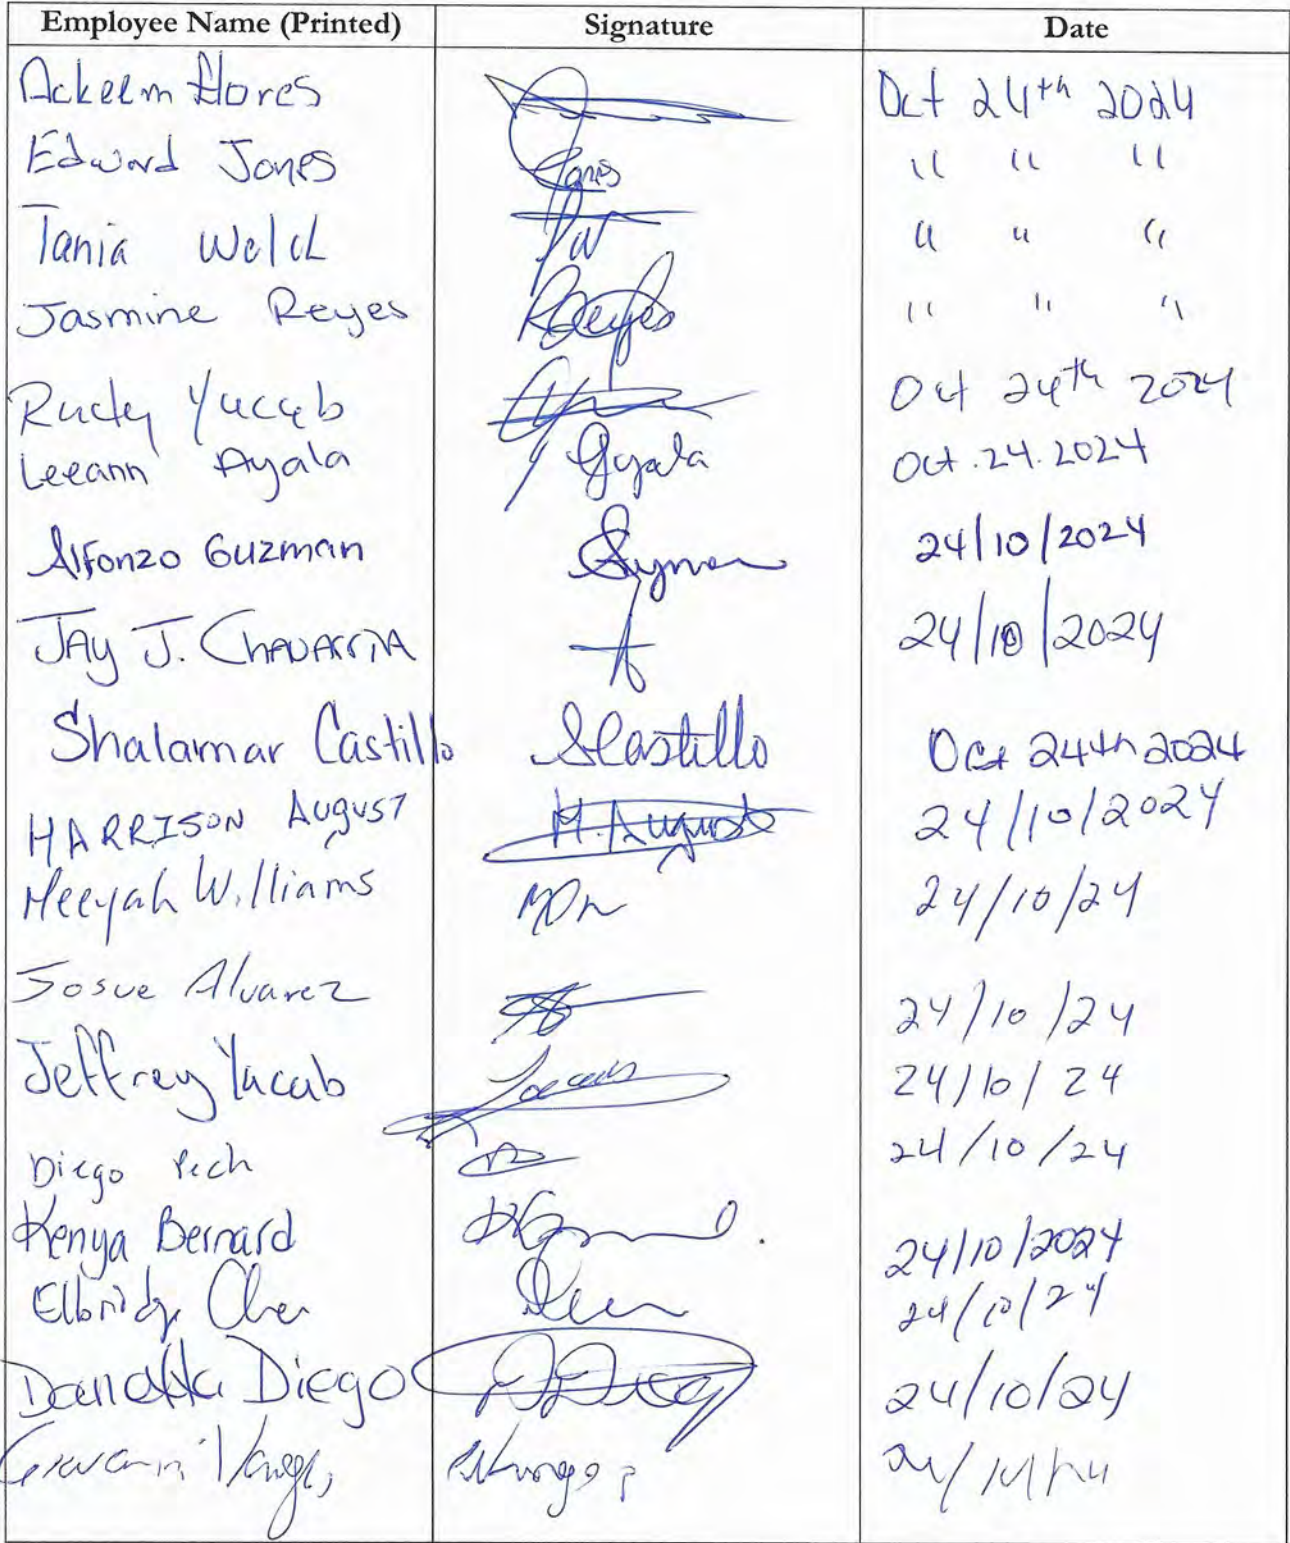 Employee Name (Printed) Signature Date
Ackeem Flores Oct 24th 2024
Edward Jones Jones " " "
Tania Welch TW " " "
Jasmine Reyes Reyes " " "
Rudy Yucab Oct 24th 2024
Leeann Ayala Ayala Oct.24.2024
Alfonzo Guzman 24/10/2024
JAY J. CHAVARRIA 24/10/2024
Shalamar Castillo SCastillo Oct 24th 2024
HARRISON AUGUST H. August 24/10/2024
Meeyah Williams 24/10/24
Josue Alvarez 24/10/24
Jeffrey Yacab 24/10/24
Diego Pech 24/10/24
Kenya Bernard 24/10/2024
Elbridge 24/10/24
Diego DDiego 24/10/24